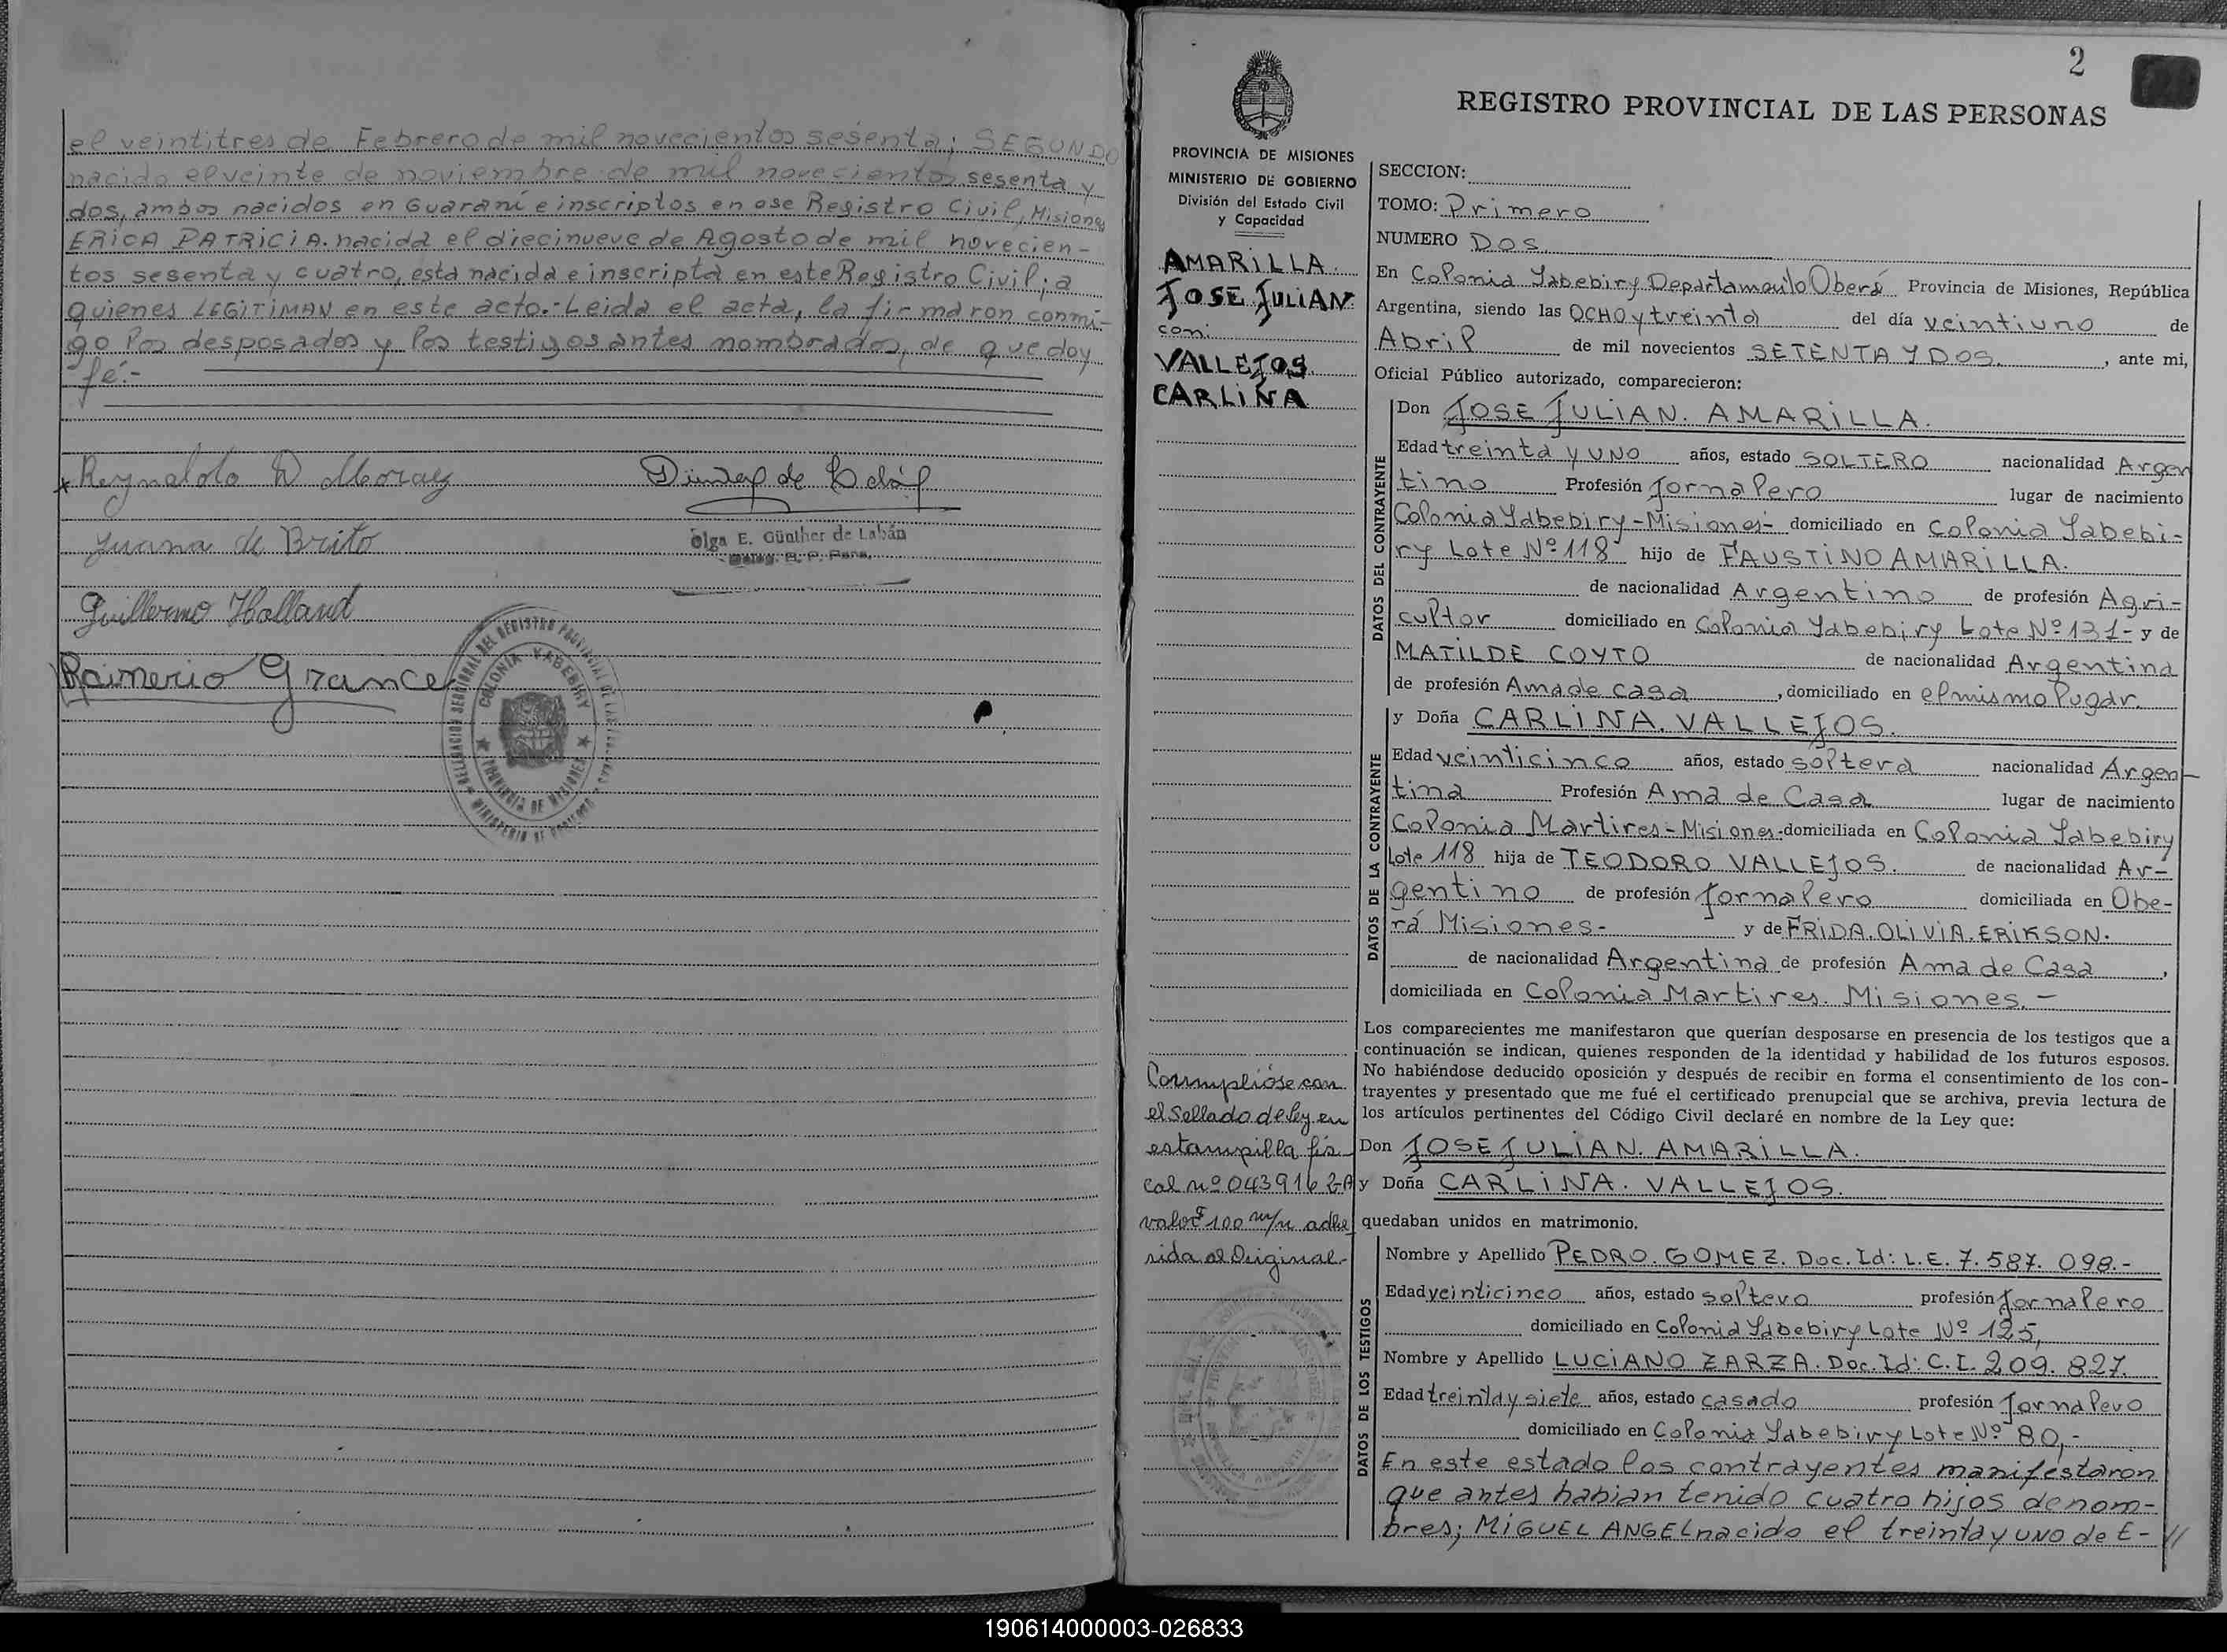 el veintitres de Febrero de mil novecientos sesenta; SEGUNDO
nacido el veinte de noviembre de mil novecientos sesenta y
dos, ambos nacidos en Guaraní e inscriptos en ese Registro Civil, Misiones
ERICA PATRICIA. nacida el diecinueve de Agosto de mil novecien-
tos sesenta y cuatro, esta nacida e inscripta en este Registro Civil; a
quienes LEGITIMAN en este acto.- Leida el acta, la firmaron conmi-
go los desposados y los testigos antes nombrados, de que doy
fé.-
Reynaldo D Moraez
Juana de Brito
Olga E. Günther de Labán
Guillermo Holland
Raimerio Grance
DELEGACION SECCIONAL DEL REGISTRO PROVINCIAL DE LAS PERSONAS
COLONIA YABEBIRY
PROVINCIA DE MISIONES
MINISTERIO DE GOBIERNO
2
REGISTRO PROVINCIAL DE LAS PERSONAS
PROVINCIA DE MISIONES
MINISTERIO DE GOBIERNO
División del Estado Civil
y Capacidad
AMARILLA.
JOSE JULIAN.
con:
VALLEJOS
CARLINA
SECCION:
TOMO: Primero
NUMERO DOS
En Colonia Yabebiry Departamento Oberá Provincia de Misiones, República
Argentina, siendo las OCHO y treinta del día veintiuno de
Abril de mil novecientos SETENTA Y DOS, ante mi,
Oficial Público autorizado, comparecieron:
DATOS DEL CONTRAYENTE
Don JOSE JULIAN. AMARILLA.
Edad treinta y UNO años, estado SOLTERO nacionalidad Argen
tino Profesión Jornalero lugar de nacimiento
Colonia Yabebiry-Misiones- domiciliado en Colonia Yabebi-
ry Lote Nº 118 hijo de FAUSTINO AMARILLA.
de nacionalidad Argentino de profesión Agri-
cultor domiciliado en Colonia Yabebiry Lote Nº 131- y de
MATILDE COYTO de nacionalidad Argentina
de profesión Ama de casa, domiciliado en el mismo lugar.
DATOS DE LA CONTRAYENTE
y Doña CARLINA. VALLEJOS.
Edad veinticinco años, estado soltera nacionalidad Argen-
tina Profesión Ama de Casa lugar de nacimiento
Colonia Martires-Misiones-domiciliada en Colonia Yabebiry
Lote 118 hija de TEODORO VALLEJOS. de nacionalidad Ar-
gentino de profesión Jornalero domiciliada en Obe-
rá Misiones- y de FRIDA. OLIVIA. ERIKSON.
de nacionalidad Argentina de profesión Ama de Casa,
domiciliada en Colonia Martires. Misiones.-
Los comparecientes me manifestaron que querían desposarse en presencia de los testigos que a
continuación se indican, quienes responden de la identidad y habilidad de los futuros esposos.
No habiéndose deducido oposición y después de recibir en forma el consentimiento de los con-
trayentes y presentado que me fué el certificado prenupcial que se archiva, previa lectura de
los artículos pertinentes del Código Civil declaré en nombre de la Ley que:
Don JOSE JULIAN. AMARILLA.
y Doña CARLINA. VALLEJOS.
quedaban unidos en matrimonio.
Cumplióse con
el Sellado de ley en
estampilla fis-
cal nº 0439162-A
valor $ 100 m/n adhe
rida al Original-
DATOS DE LOS TESTIGOS
Nombre y Apellido PEDRO. GOMEZ. Doc. Id: L.E. 7.587.098.-
Edad veinticinco años, estado soltero profesión Jornalero
domiciliado en Colonia Yabebiry Lote Nº 125,
Nombre y Apellido LUCIANO ZARZA. Doc. Id: C.I. 209.827.
Edad treinta y siete años, estado casado profesión Jornalero
domiciliado en Colonia Yabebiry Lote Nº 80,-
En este estado los contrayentes manifestaron
que antes habian tenido cuatro hijos de nom-
bres; MIGUEL ANGEL nacido el treinta y uno de E- //
190614000003-026833